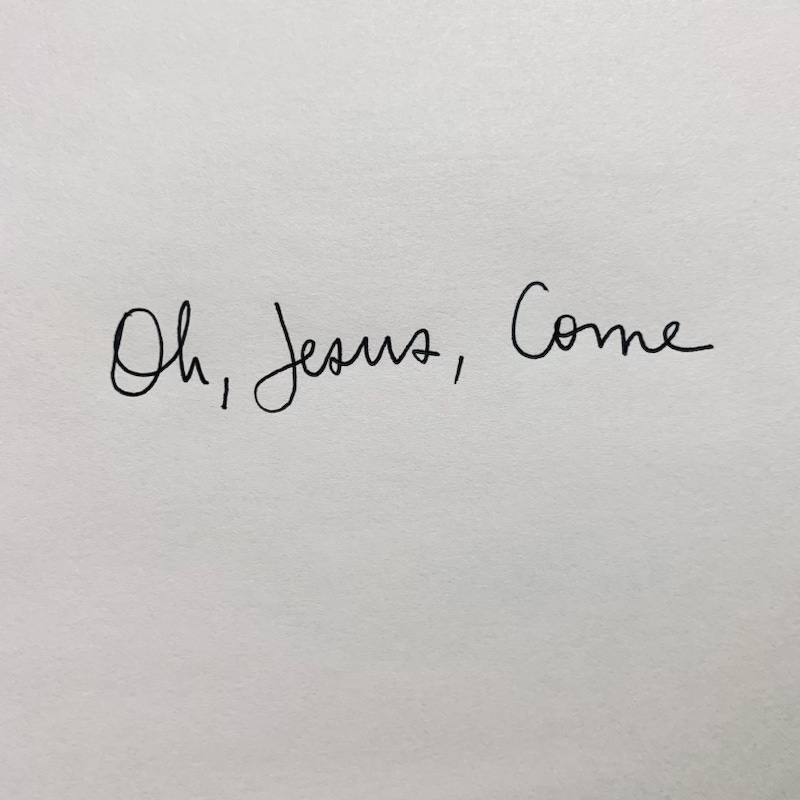 Oh, Jesus, Come